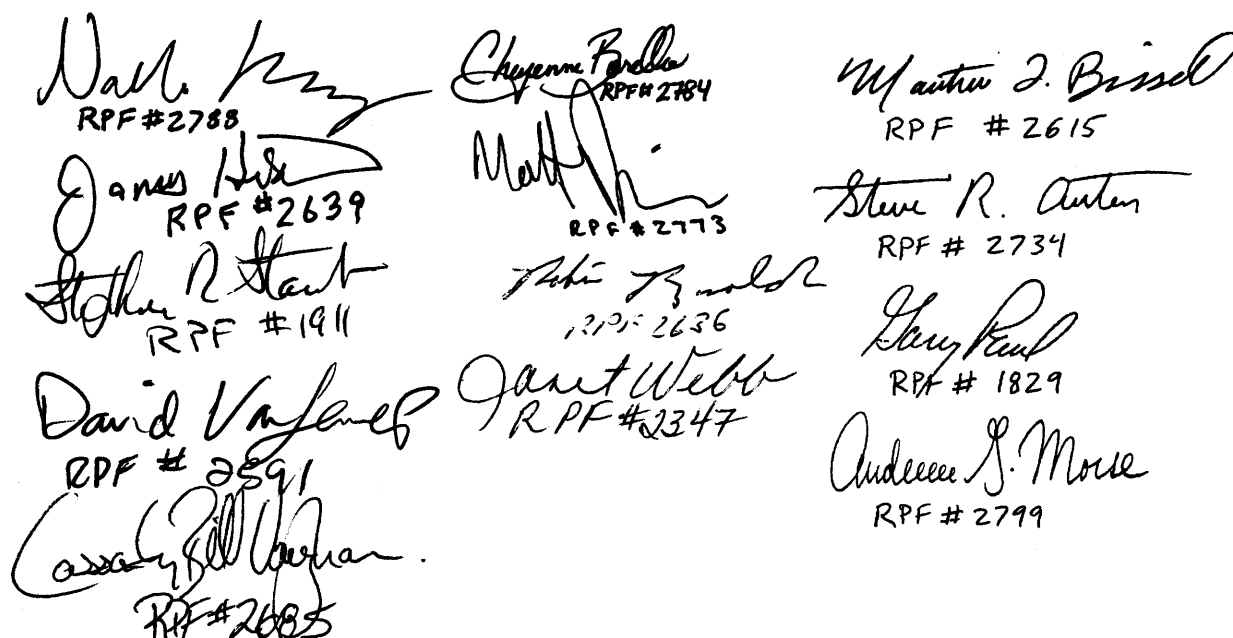 RPF #2788
James
RPF #2639
Stephen R Staub
RPF #1911
David
RPF # 2591
Cassady Bill Vaughan.
RPF #2685
Cheyenne
RPF #2784
Matt
RPF #2773
Robin
RPF 2636
Janet Webb
RPF #2347
J. Bissell
RPF #2615
Steve R. Auten
RPF # 2734
Gary Paul
RPF # 1829
G. Morse
RPF # 2799